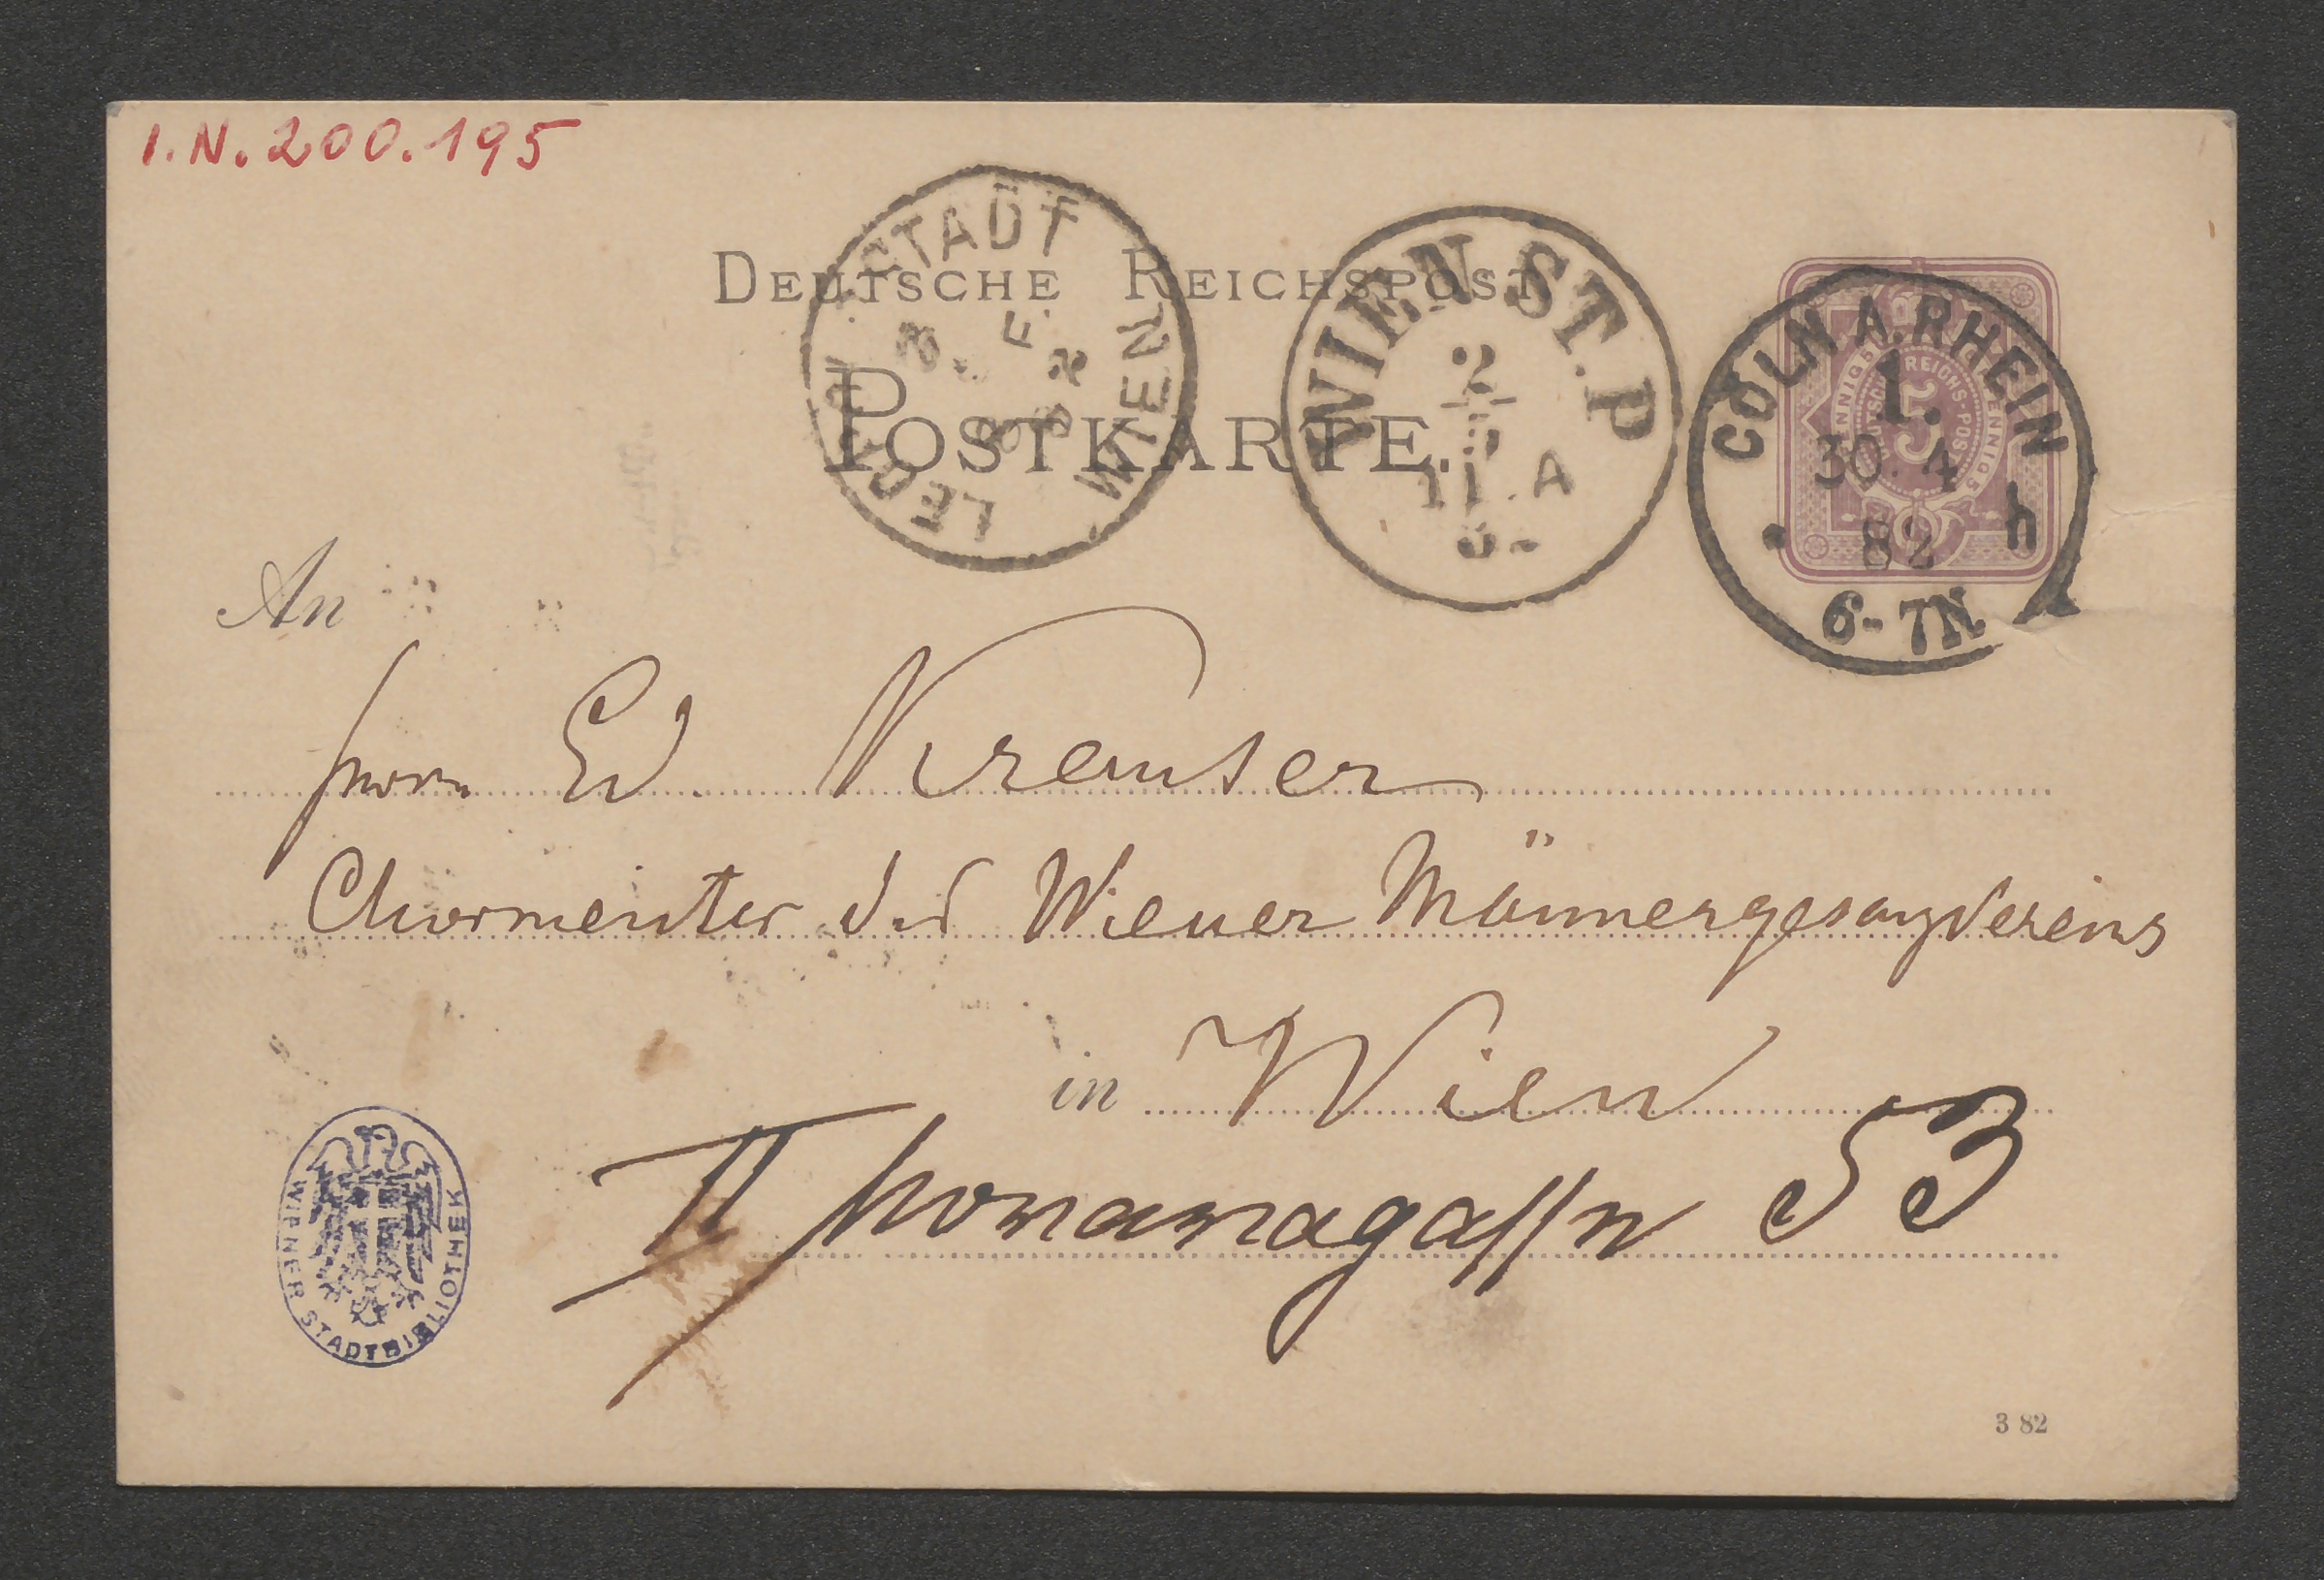 I.N. 200.195
DEUTSCHE REICHSPOST
POSTKARTE.
LEOPOLDSTADT WIEN
WIEN ST. P
2
11. A
CÖLN A. RHEIN
1.
30. 4
82
h
6-7N
DEUTSCHE REICHS-POST
5
An
Herrn Ed. Kremser
Chormeister des Wiener Männergesangvereins
in Wien
II Novaragasse 53
WIENER STADTBIBLIOTHEK
3 82